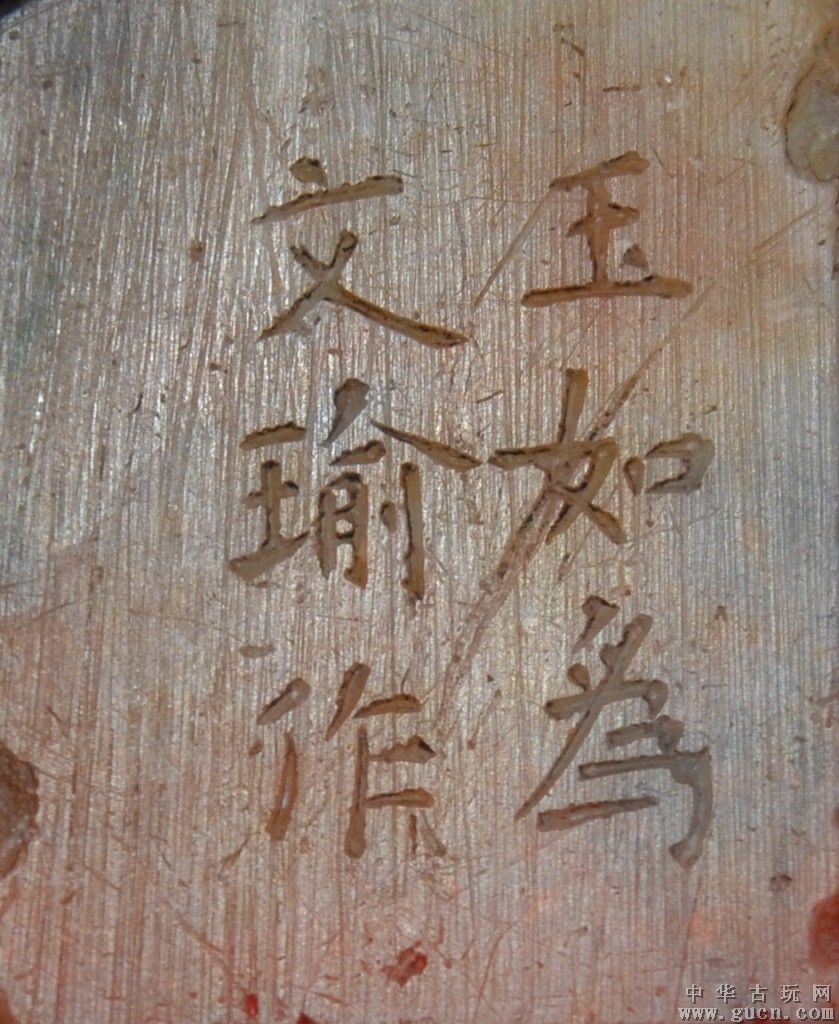 玉如為
文瑜作
中华古玩网
www.gucn.com